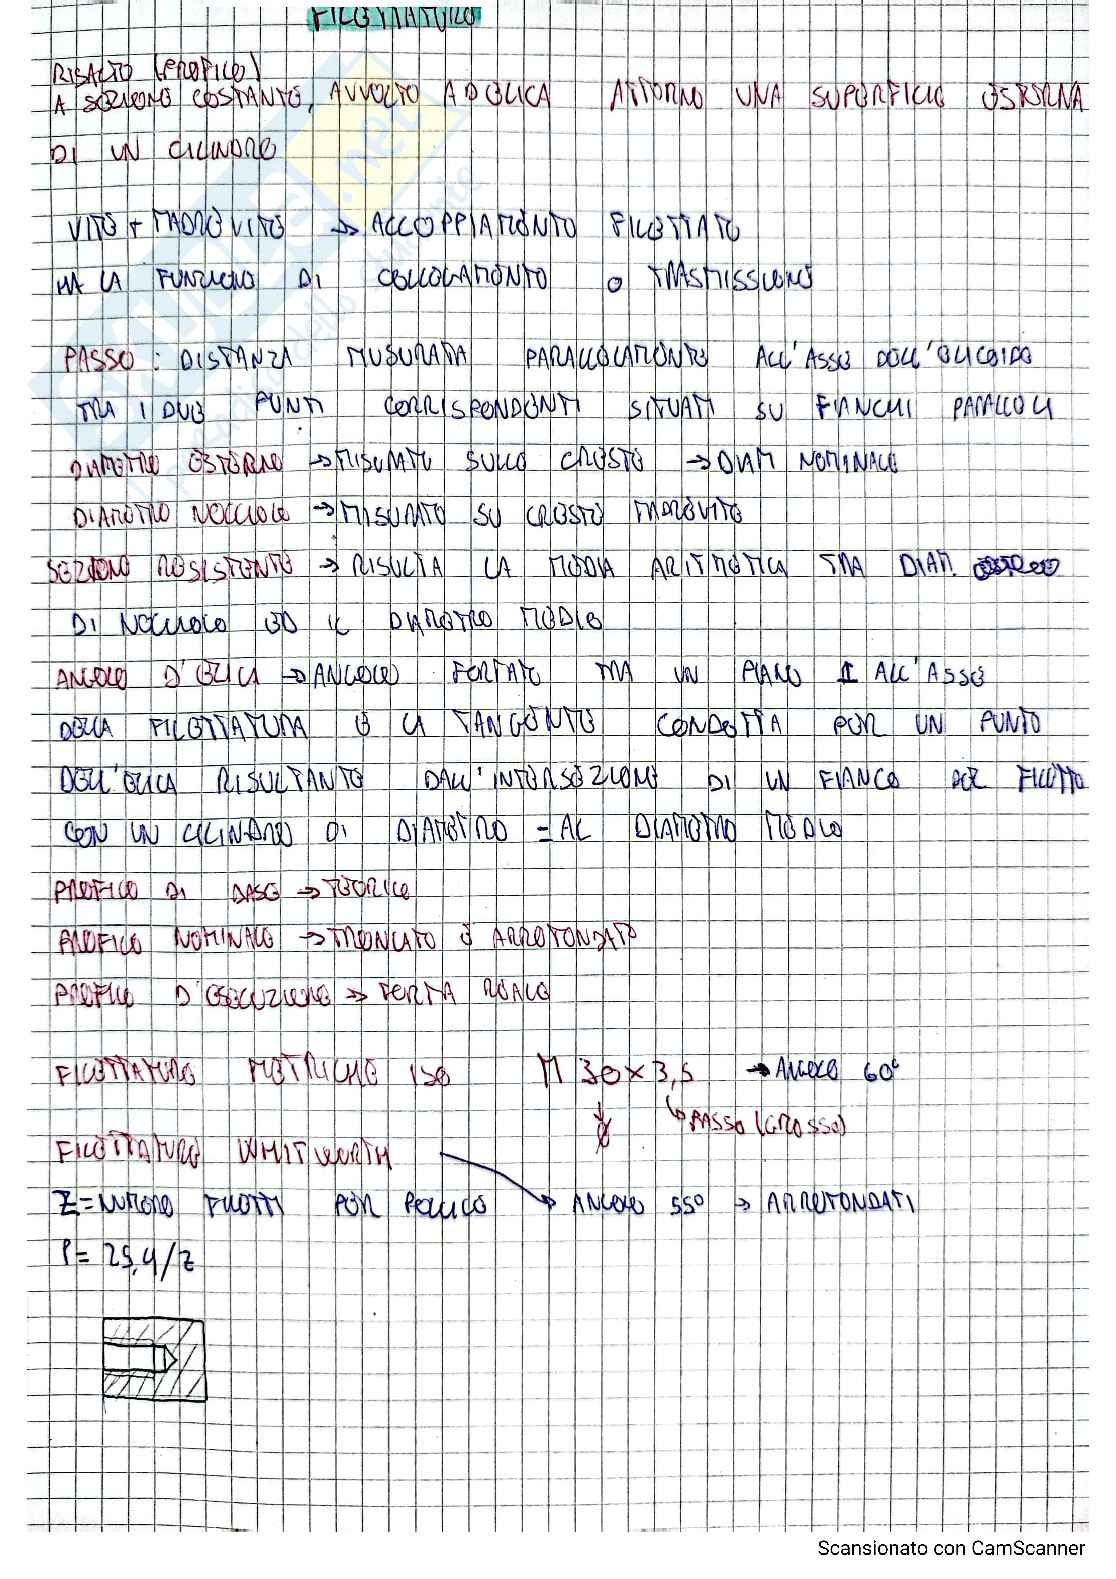 FILETTATURE
RISALTO (PROFILO)
A SEZIONE COSTANTE, AVVOLTO AD ELICA ATTORNO UNA SUPERFICIE ESTERNA
DI UN CILINDRO
VITE + MADREVITE → ACCOPPIAMENTO FILETTATO
HA LA FUNZIONE DI COLLEGAMENTO O TRASMISSIONE
PASSO: DISTANZA MUSURATA PARALLELAMENTE ALL'ASSE DELL'ELICOIDE
TRA I DUE PUNTI CORRISPONDENTI SITUATI SU FIANCHI PARALLELI
DIAMETRO ESTERNO → MISURATO SULLE CRESTE → DIAM NOMINALE
DIAMETRO NOCCIOLO → MISURATO SU CRESTE MADREVITE
SEZIONE RESISTENTE → RISULTA LA MEDIA ARITMETICA TRA DIAM.
DI NOCCIOLO ED IL DIAMETRO MEDIO
ANGOLO D'ELICA → ANGOLO FORMATO TRA UN PIANO ⊥ ALL'ASSE
DELLA FILETTATURA E LA TANGENTE CONDOTTA PER UN PUNTO
DELL'ELICA RISULTANTE DALL'INTERSEZIONE DI UN FIANCO DEL FILETTO
CON UN CILINDRO DI DIAMETRO = AL DIAMETRO MEDIO
PROFILO DI BASE → TEORICO
PROFILO NOMINALE → TRONCATO E ARROTONDATO
PROFILO D'ESECUZIONE → FORMA REALE
FILETTATURE METRICHE ISO M 30 × 3,5 → ANGOLO 60°
↓ Ø ↳ PASSO (GROSSO)
FILETTATURE WHITWORTH
Z = NUMERO FILETTI PER POLLICE → ANGOLO 55° → ARROTONDATI
P = 25,4/Z
Scansionato con CamScanner